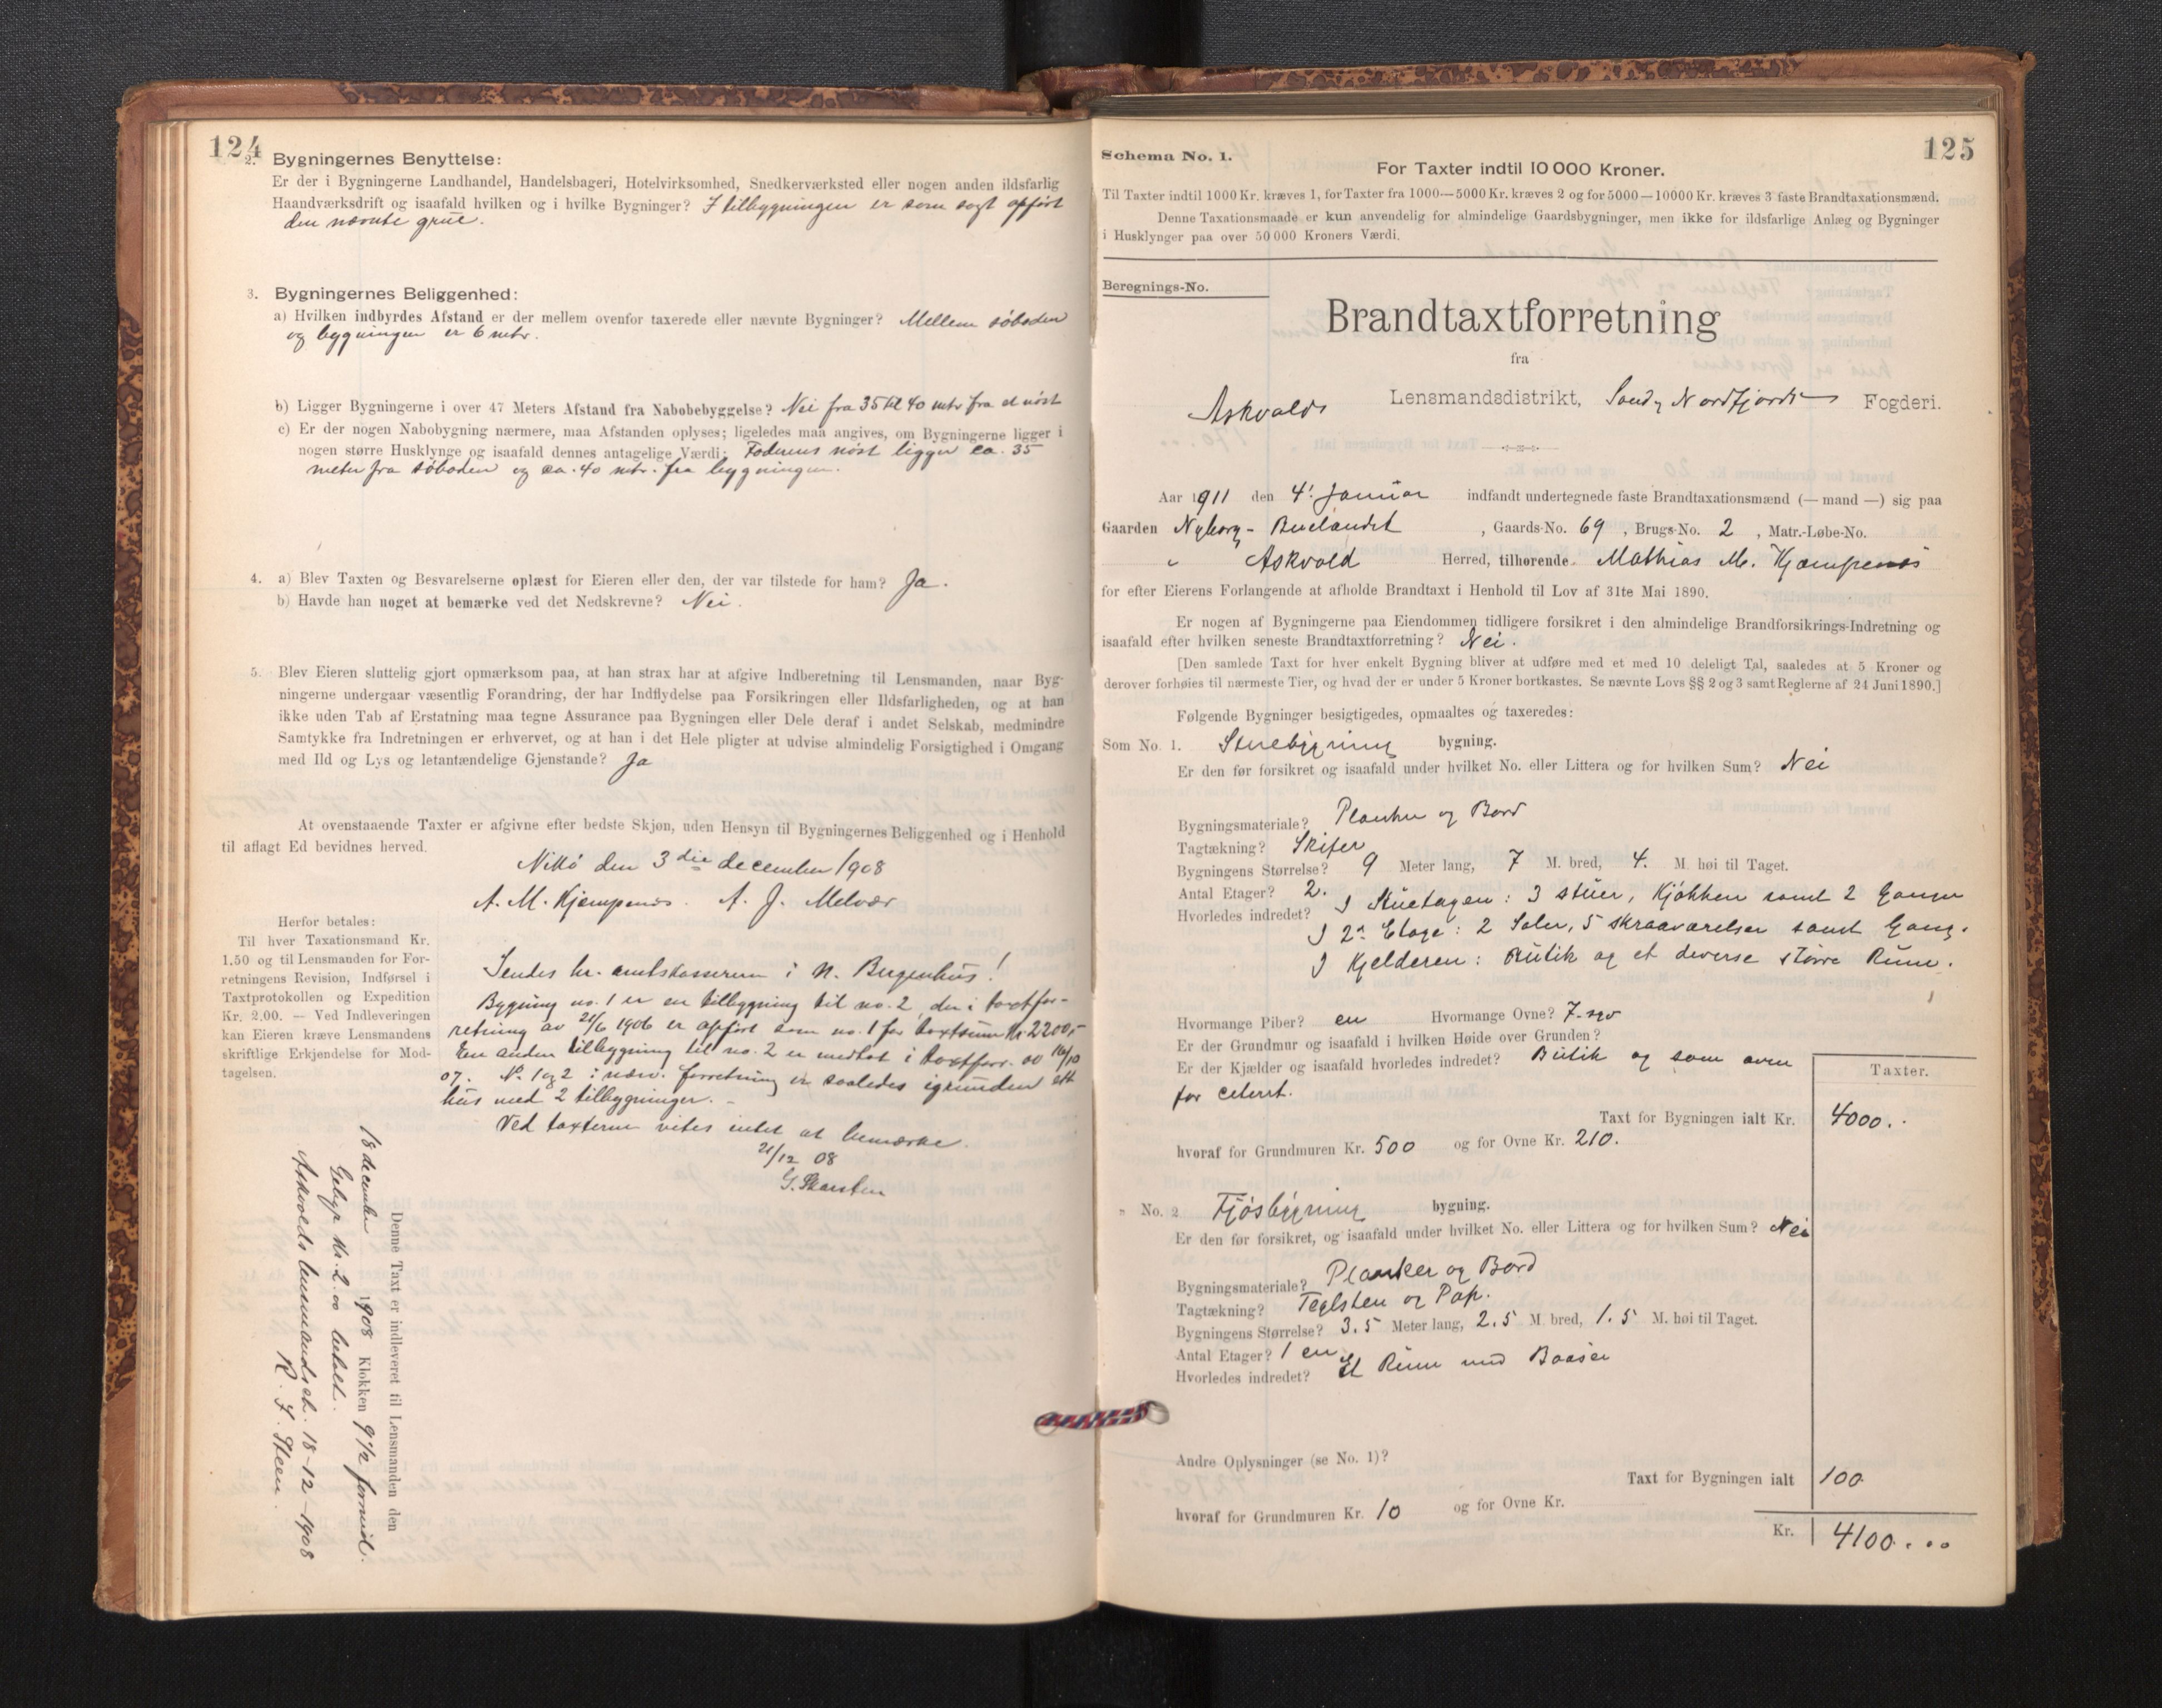 124
2. Bygningernes Benyttelse:
Er der i Bygningerne Landhandel, Handelsbageri, Hotelvirksomhed, Snedkerværksted eller nogen anden ildsfarlig
Haandværksdrift og isaafald hvilken og i hvilke Bygninger? I tilbygningen er som sagt opført
den nævnte grue.
3. Bygningernes Beliggenhed:
a) Hvilken indbyrdes Afstand er der mellem ovenfor taxerede eller nævnte Bygninger? Mellem søboden
og bygningen er 6 mtr.
b) Ligger Bygningerne i over 47 Meters Afstand fra Nabobebyggelse? Nei fra 35 til 40 mtr fra et nøst
c) Er der nogen Nabobygning nærmere, maa Afstanden oplyses; ligeledes maa angives, om Bygningerne ligger i
nogen større Husklynge og isaafald dennes antagelige Værdi: Foderens nøst ligger ca. 35
meter fra søboden og ca. 40 mtr. fra bygningen.
4. a) Blev Taxten og Besvarelserne oplæst for Eieren eller den, der var tilstede for ham? Ja.
b) Havde han noget at bemærke ved det Nedskrevne? Nei.
5. Blev Eieren sluttelig gjort opmærksom paa, at han strax har at afgive Indberetning til Lensmanden, naar Byg-
ningerne undergaar væsentlig Forandring, der har Indflydelse paa Forsikringen eller Ildsfarligheden, og at han
ikke uden Tab af Erstatning maa tegne Assurance paa Bygningen eller Dele deraf i andet Selskab, medmindre
Samtykke fra Indretningen er erhvervet, og at han i det Hele pligter at udvise almindelig Forsigtighed i Omgang
med Ild og Lys og letantændelige Gjenstande? Ja
At ovenstaaende Taxter er afgivne efter bedste Skjøn, uden Hensyn til Bygningernes Beliggenhed og i Henhold
til aflagt Ed bevidnes herved.
Nittø den 3die december 1908
A. M. Kjempenes. A. J. Melvær
Herfor betales:
Til hver Taxationsmand Kr.
1.50 og til Lensmanden for For-
retningens Revision, Indførsel i
Taxtprotokollen og Expedition
Kr. 2.00. — Ved Indleveringen
kan Eieren kræve Lensmandens
skriftlige Erkjendelse for Mod-
tagelsen.
Sendes hr. amtskassereren i N. Bergenhus!
Bygning no. 1 er en tilbygning til no. 2, der i taxtfor-
retning av 21/6 1906 er opført som no. 1 for taxtsum Kr. 2200,-
En anden tilbygning til no. 2 er medtat i taxtforr. av 16/10
07. No. 1 og 2 i nærv. forretning er saaledes igrunden ett
hus med 2 tilbygninger. -
Ved taxterne vites intet at bemærke.
21/12 08
G. Skarsten
Denne Taxt er indleveret til Lensmanden den
18 december 1908 Klokken 9 1/2 formid.
Gebyr Kr. 2.00 betalt.
Askvolds lensmandsek. 18-12-1908
R. J. Steen.
125
Schema No. 1.
For Taxter indtil 10 000 Kroner.
Til Taxter indtil 1000 Kr. kræves 1, for Taxter fra 1000—5000 Kr. kræves 2 og for 5000—10000 Kr. kræves 3 faste Brandtaxationsmænd.
Denne Taxationsmaade er kun anvendelig for almindelige Gaardsbygninger, men ikke for ildsfarlige Anlæg og Bygninger
i Husklynger paa over 50 000 Kroners Værdi.
Beregnings-No.
Brandtaxtforretning
fra
Askvolds Lensmandsdistrikt, Sønd- & Nordfjords Fogderi.
Aar 1911 den 4' Januar indfandt undertegnede faste Brandtaxationsmænd (— mand —) sig paa
Gaarden Nyborg - Buelandet, Gaards-No. 69, Brugs-No. 2, Matr.-Løbe-No.
" Askvold Herred, tilhørende Mathias M. Kjæmpenes
for efter Eierens Forlangende at afholde Brandtaxt i Henhold til Lov af 31te Mai 1890.
Er nogen af Bygningerne paa Eiendommen tidligere forsikret i den almindelige Brandforsikrings-Indretning og
isaafald efter hvilken seneste Brandtaxtforretning? Nei.
[Den samlede Taxt for hver enkelt Bygning bliver at udføre med et med 10 deleligt Tal, saaledes at 5 Kroner og
derover forhøies til nærmeste Tier, og hvad der er under 5 Kroner bortkastes. Se nævnte Lovs §§ 2 og 3 samt Reglerne af 24 Juni 1890.]
Følgende Bygninger besigtigedes, opmaaltes og taxeredes:
Som No. 1. Stuebygning bygning.
Er den før forsikret og isaafald under hvilket No. eller Littera og for hvilken Sum? Nei
Bygningsmateriale? Planker og Bord
Tagtækning? Skifer
Bygningens Størrelse? 9 Meter lang, 7 M. bred, 4. M. høi til Taget.
Antal Etager? 2.
Hvorledes indredet? I Stuetagen: 3 stuer, Kjøkken samt 2 Gange
I 2n Etage: 2 Saler, 5 skraaværelser samt Gang.
I Kjelderen: Butik og et deverse større Rum.
Hvormange Piber? en Hvormange Ovne? 7-syv
Er der Grundmur og isaafald i hvilken Høide over Grunden?
Er der Kjælder og isaafald hvorledes indredet? Butik og som oven
for citeret.
Taxter.
Taxt for Bygningen ialt Kr. 4000..
hvoraf for Grundmuren Kr. 500 og for Ovne Kr. 210.
" No. 2 Fjøsbygning bygning.
Er den før forsikret, og isaafald under hvilket No. eller Littera og for hvilken Sum? Nei
Bygningsmateriale? Planker og Bord
Tagtækning? Teglsten og Pap.
Bygningens Størrelse? 3.5 Meter lang, 2.5 M. bred, 1.5 M. høi til Taget.
Antal Etager? 1 en
Hvorledes indredet? Et Rum med Baaser
Andre Oplysninger (se No. 1)?
Taxt for Bygningen ialt 100
hvoraf for Grundmuren Kr. 10 og for Ovne Kr.
Kr. 4100...